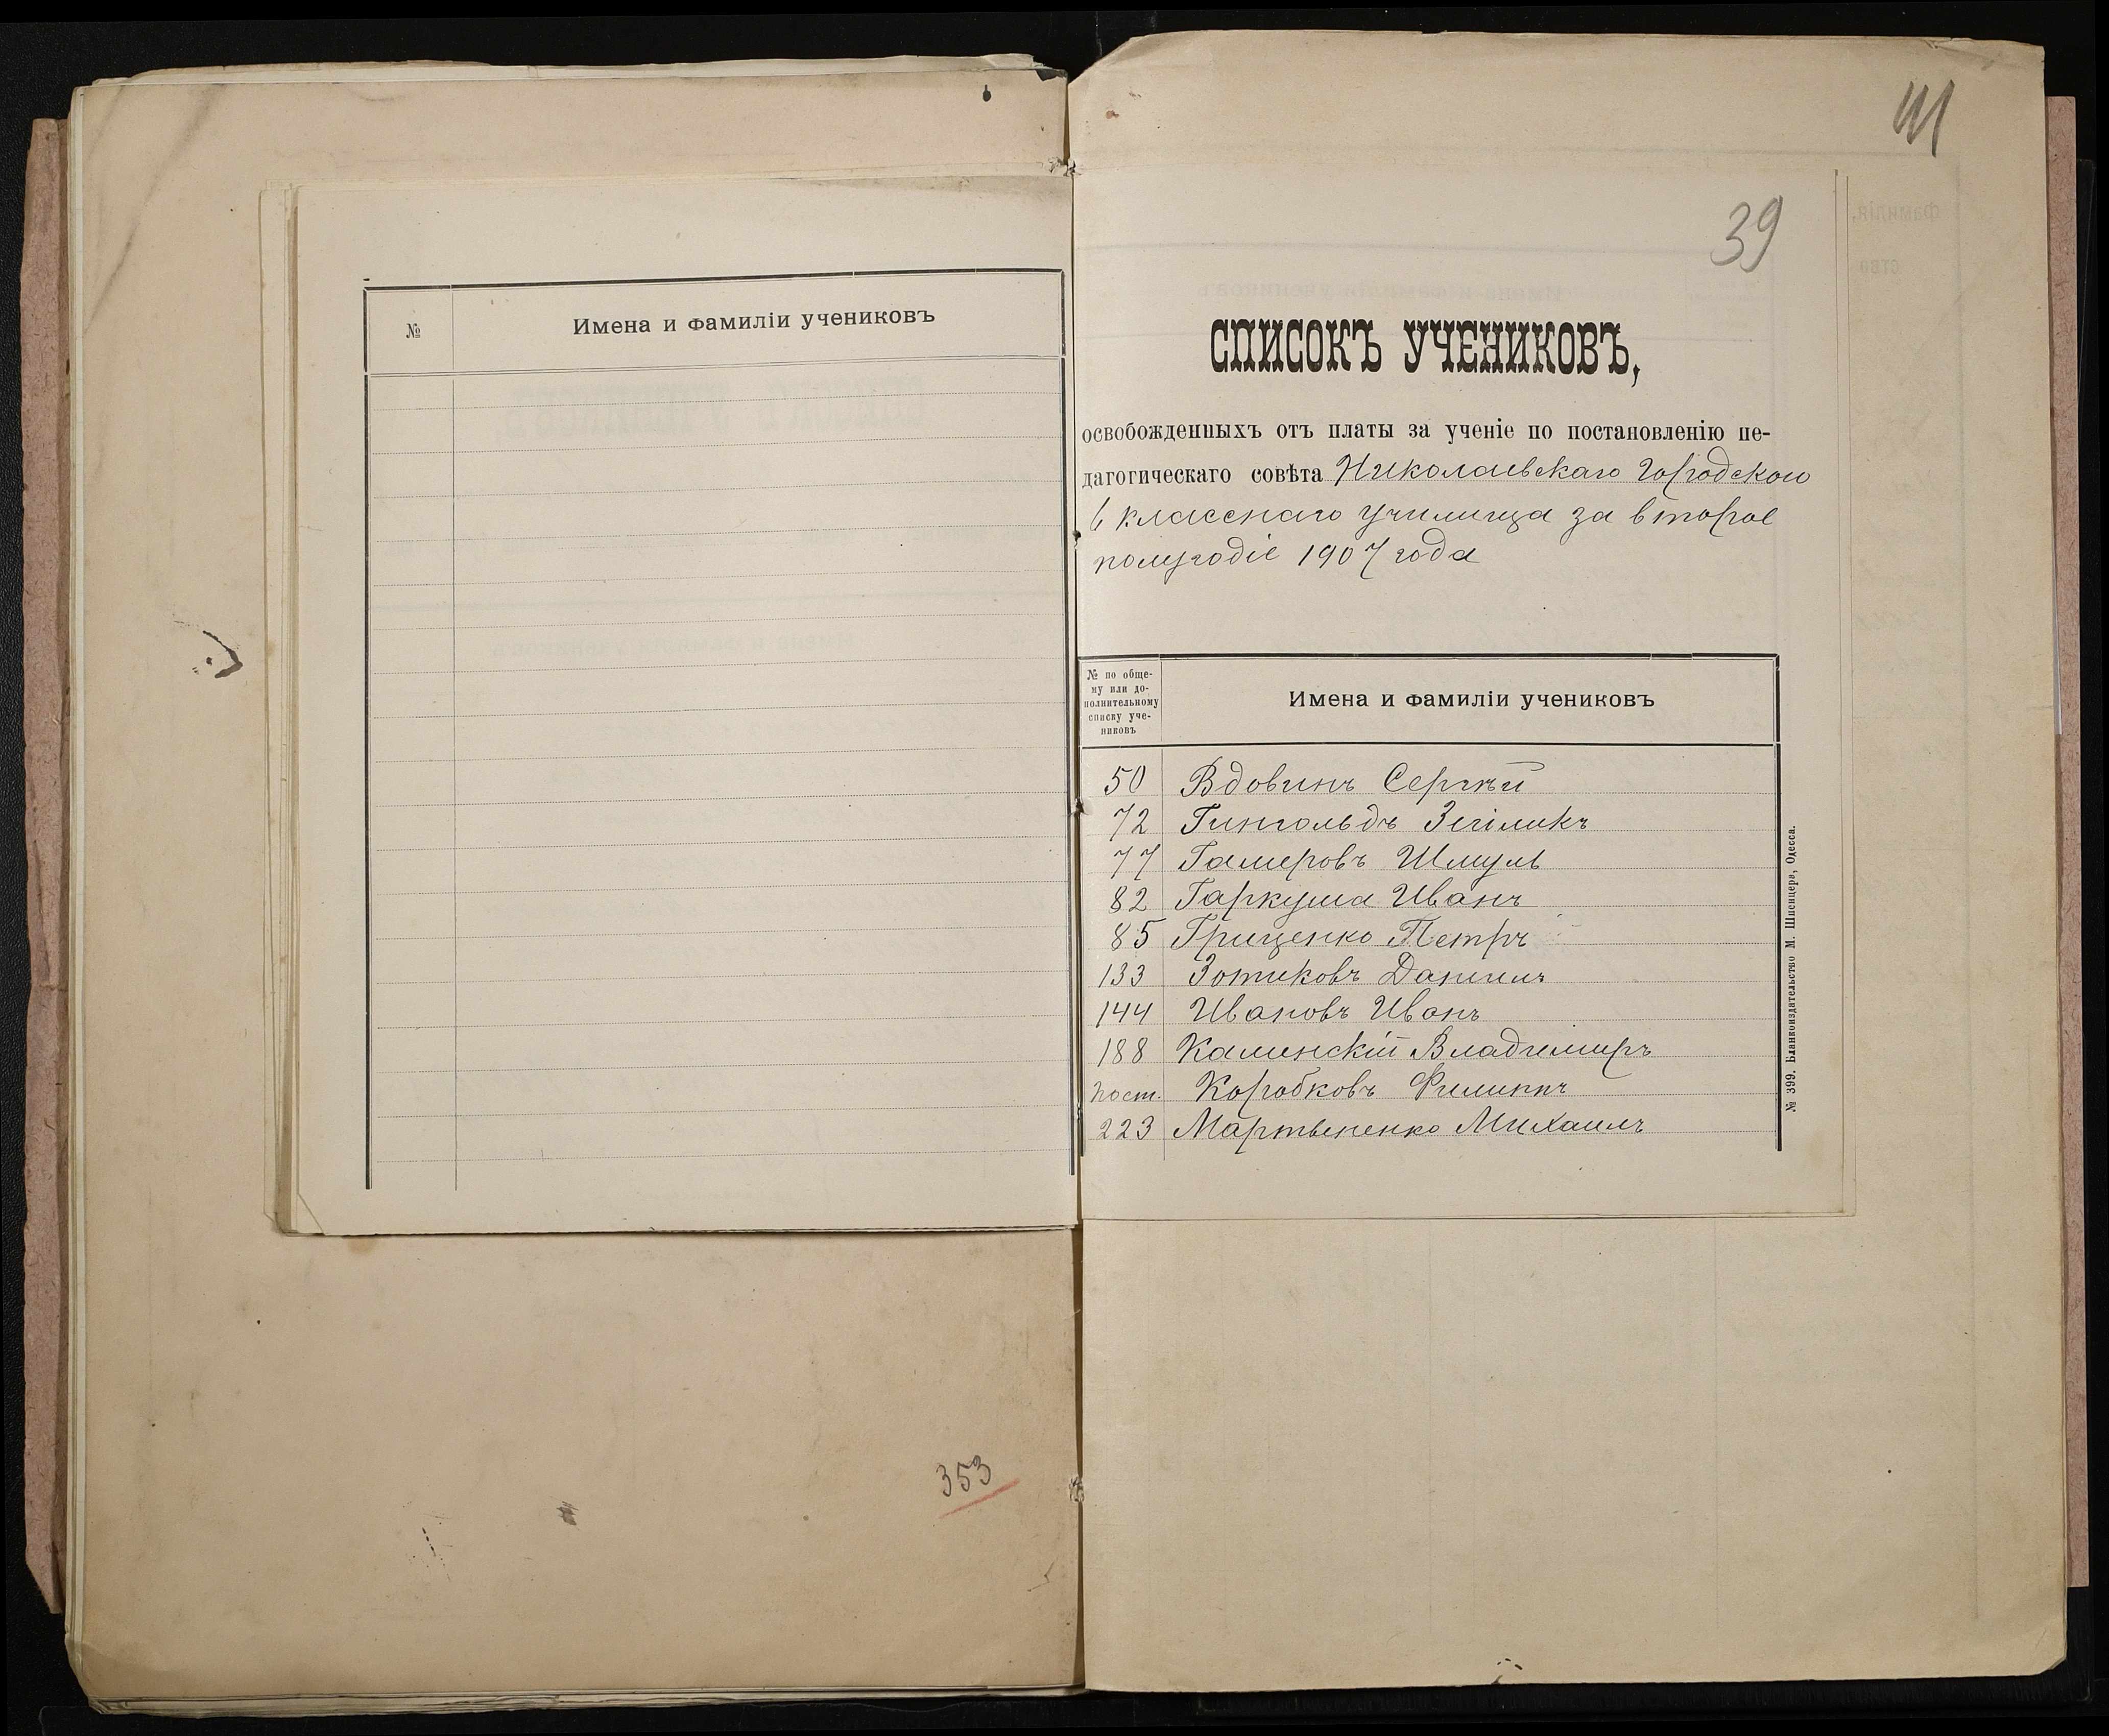 № Имена и фамиліи учениковъ
353
39
СПИСОКЪ УЧЕНИКОВЪ,
освобожденныхъ отъ платы за ученіе по постановленію пе-
дагогическаго совѣта Николаевскаго Городского
класснаго училища за второе
полугодіе 1907 года
№ по обще-
му или до-
полнительному
списку уче-
никовъ
Имена и фамиліи учениковъ
50 Вдовинъ Сергѣй
72 Гингольдъ
77 Гамеровъ Шмуль
82 Гаркуша Иванъ
85 Гриценко Петръ
133 Зотиковъ Даниилъ
144 Ивановъ Иванъ
188 Каминскій Владимиръ
пост. Коробковъ Филиппъ
223 Мартыненко Михаилъ
№ 399. Бланкоиздательство М. Шпенцера, Одесса.